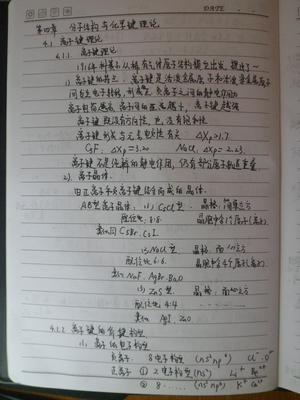 DATE
第四章 分子结构与化学键理论
4.1 离子键理论
4.1.1 离子键理论
1916年科塞尔从稀有气体原子结构稳定出发，提出了~
1) 离子键的本质：离子键是活泼金属原子和活泼非金属原子
间发生电子转移，形成正负离子之间的静电作用力
离子电荷越高，离子间的距离越小，离子键越强
离子键既没有方向性，也没有饱和性
离子键形成与元素电负性有关 ΔXp>1.7
CsF: ΔXp=3.20 NaCl: ΔXp=2.23
离子键不是纯粹的静电作用，仍有部分原子轨道重叠
2) 离子晶体
由正离子和负离子键结合而成的晶体
AB型离子晶体: (1) CsCl型 晶格: 简单立方
配位比: 8:8
类似的 CsBr. CsI
(2) NaCl型 晶格: 面心立方
配位比 6:6
类似 NaF. AgBr. BaO
(3) ZnS型 晶格: 面心立方
配位比 4:4
类似 AgI. ZnO
4.1.2 离子键的价键构型
(1) 离子的电子构型
负离子: 8电子构型 (ns²np⁶) Cl⁻. O²⁻
正离子 ① 2电子构型 (ns²) Li⁺ Be²⁺
② 8…… (ns²np⁶) K⁺ Ca²⁺